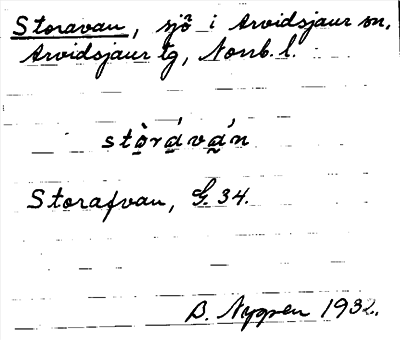 Storavan, sjö i Arvidsjaur sn,
Arvidsjaur tg, Norrb. l.
stòráván
Storafvan, G. 34.
B. Nygren 1932.